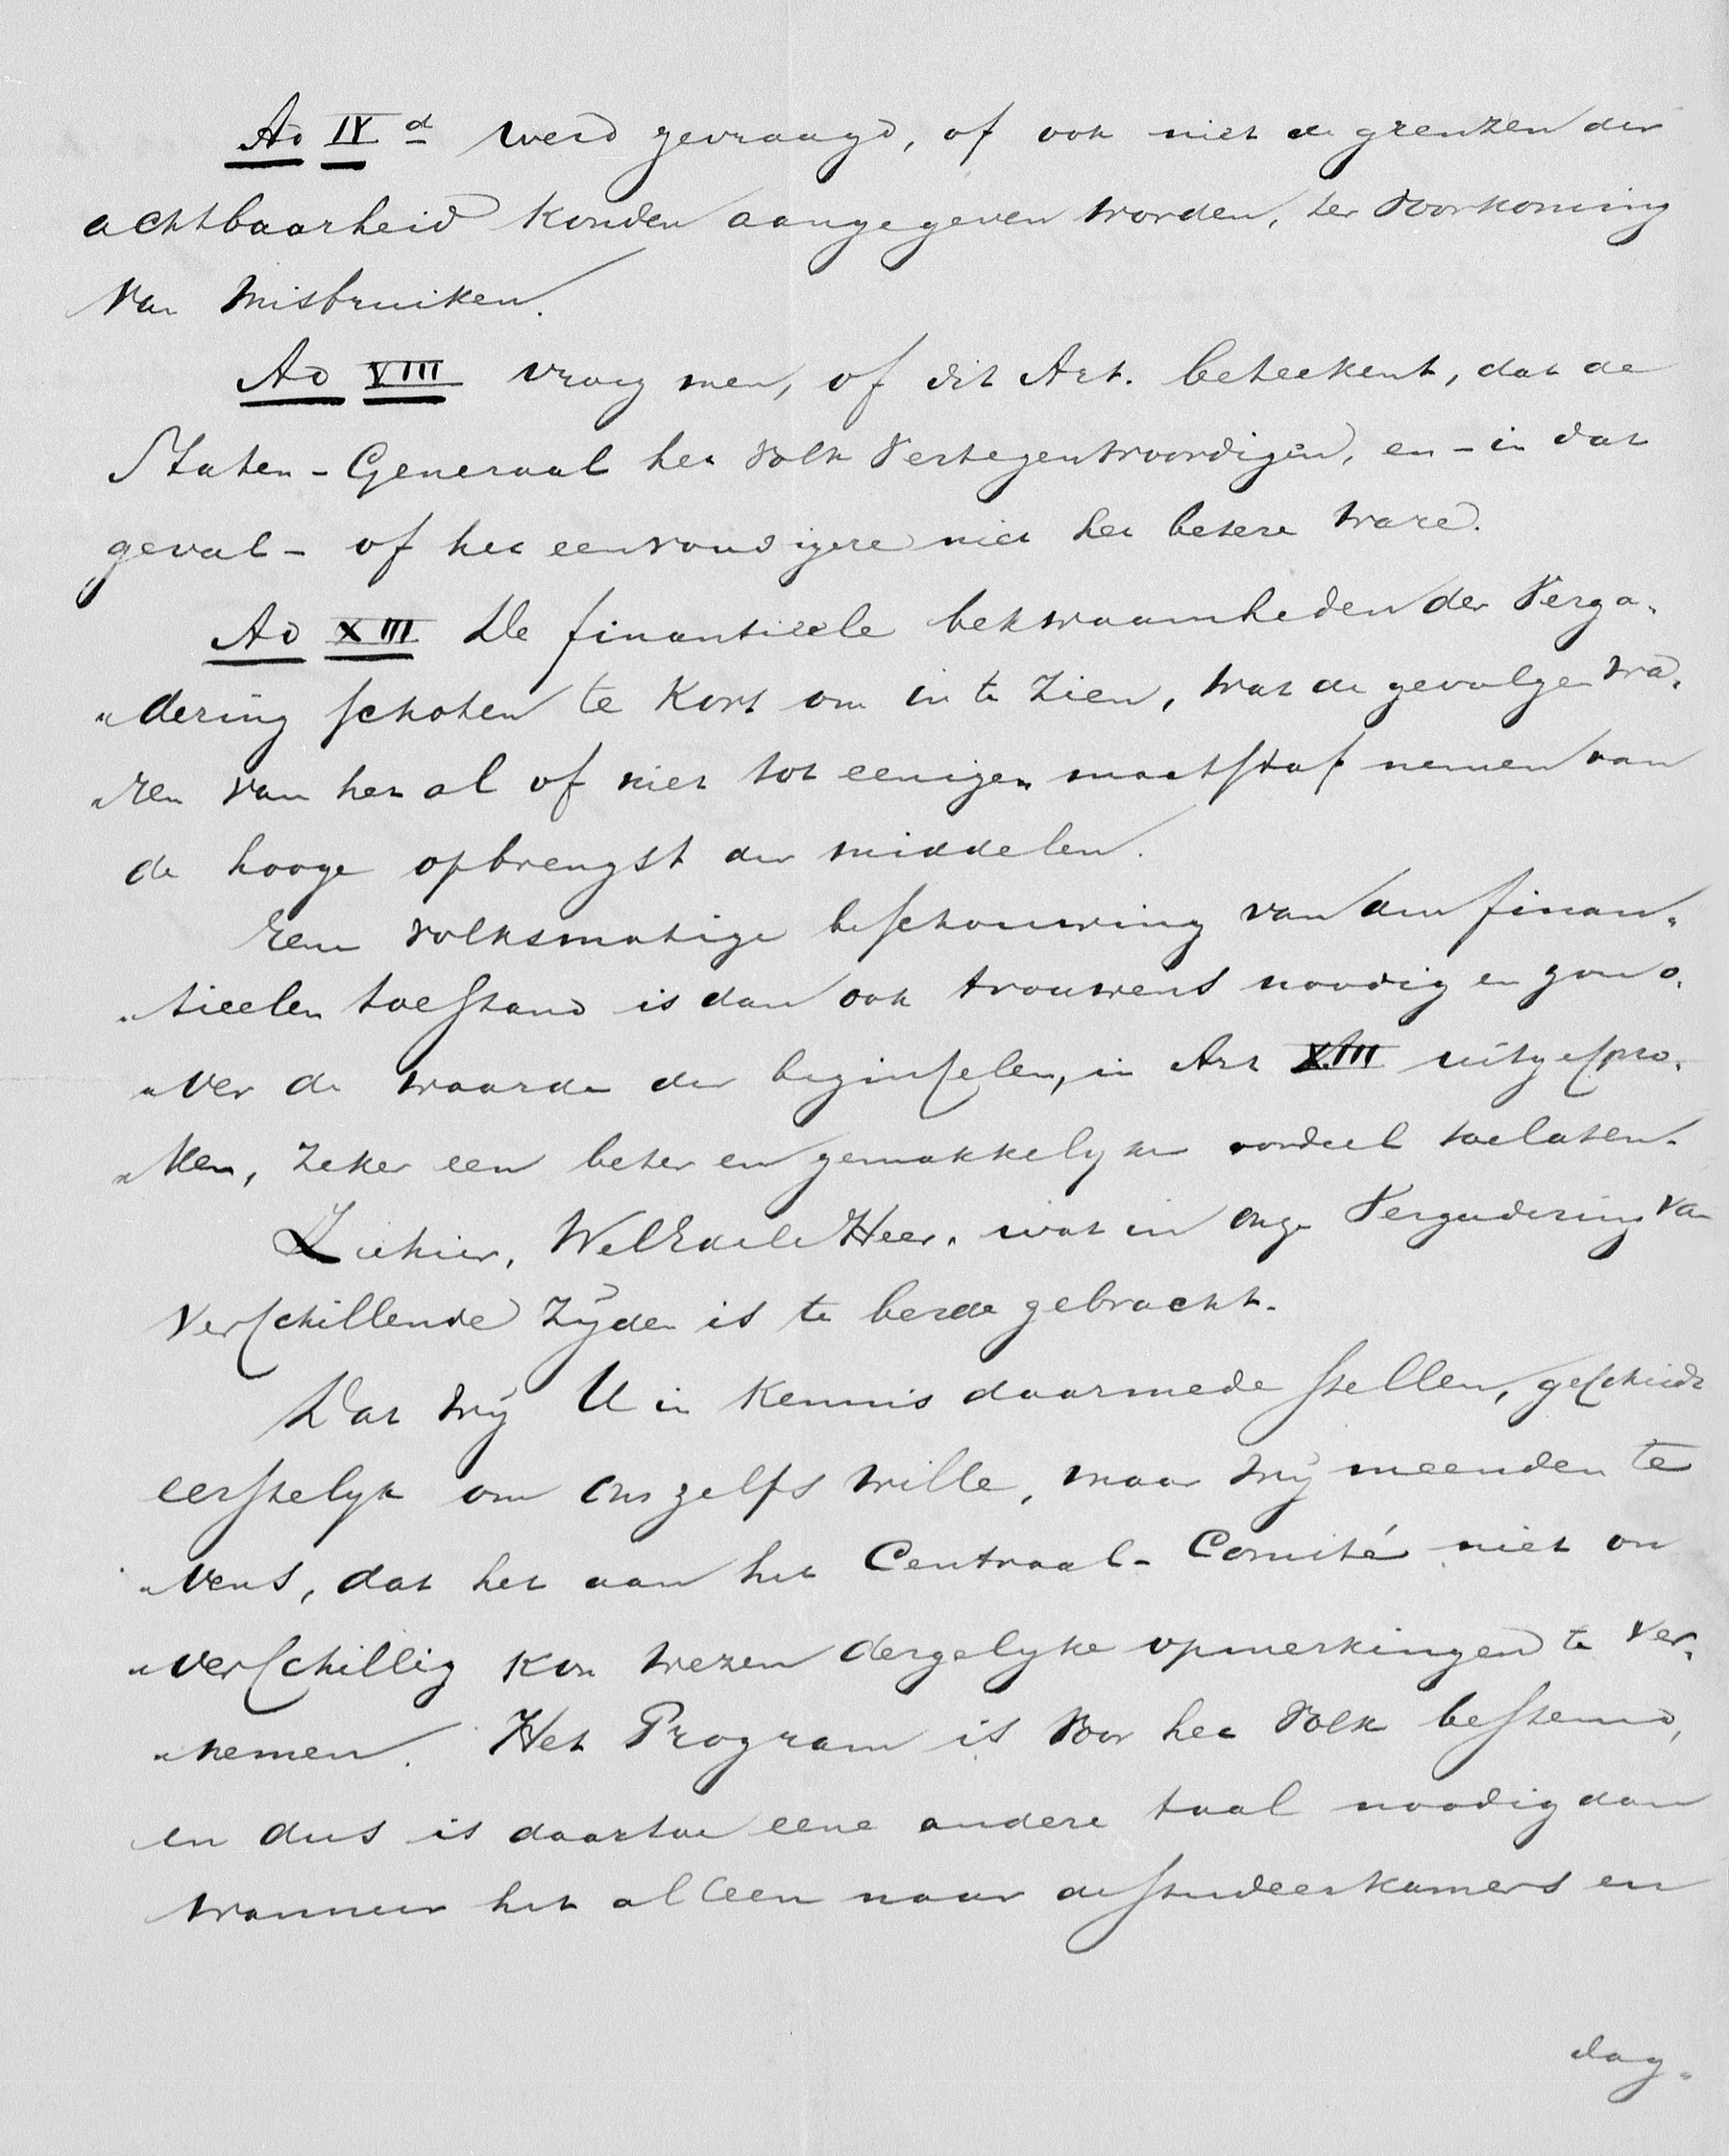 Ad IV d werd gevraagd, of ook niet de grenzen der
achtbaarheid konden aangegeven worden, ter voorkoming
van misbruiken.
Ad VIII vroeg men, of dit Art. beteekent, dat de
Staten-Generaal het volk vertegenwoordigen, en - in dat
geval - of het eenvoudigere niet het betere ware.
Ad XIII De finantieele bekwaamheden der Verga„
„dering schoten te kort om in te zien, wat de gevolgen wa„
„ren van het al of niet tot eenigen maatstaf nemen van
de hooge opbrengst der middelen.
Een volksmatige beschouwing van den finan„
„tieelen toestand is dan ook trouwens noodig en zou o„
„ver de waarde der beginselen, in Art XIII uitgespro„
„ken, zeker een beter en gemakkelyker oordeel toelaten.
Ziehier, WelEdele Heer, wat in onze Vergadering van
verschillende zÿden is te berde gebracht.
Dat wÿ U in kennis daarmede stellen, geschiedt
eerstelyk om ons zelfs wille, maar wÿ meenden te
„vens, dat het aan het Centraal-Comité niet on
„verschillig kon wezen dergelyke opmerkingen te ver„
„nemen. Het Program is voor het volk bestemd,
en dus is daartoe eene andere taal noodig dan
wanneer het alleen naar de studeerkamers en
dag„